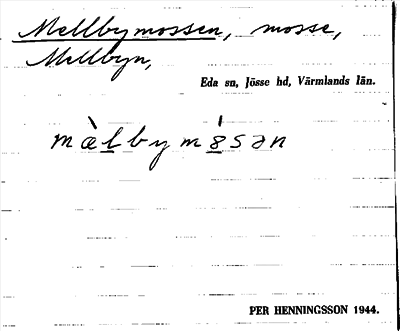 Mellbymossen, mosse,
Mellbyn,
Eda sn, Jösse hd, Värmlands län.
mæ̀lbymósən
PER HENNINGSSON 1944.